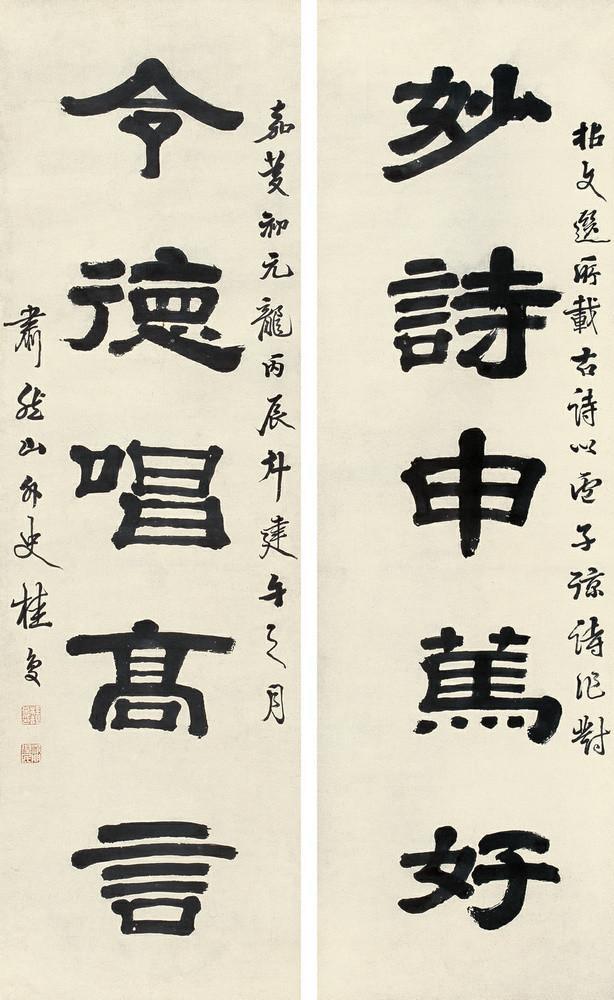 拈文選所載古詩以盧子諒詩作對
妙詩申篤好
嘉慶初元龍丙辰斗建午之月
令德唱高言
肅然山外史桂馥